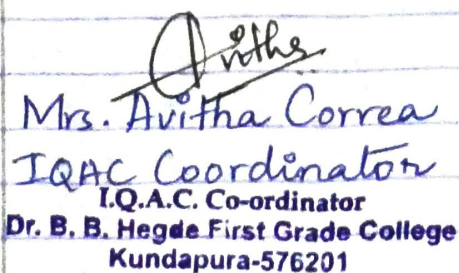 Avitha
Mrs. Avitha Correa
IQAC Coordinator
I.Q.A.C. Co-ordinator
Dr. B. B. Hegde First Grade College
Kundapura-576201